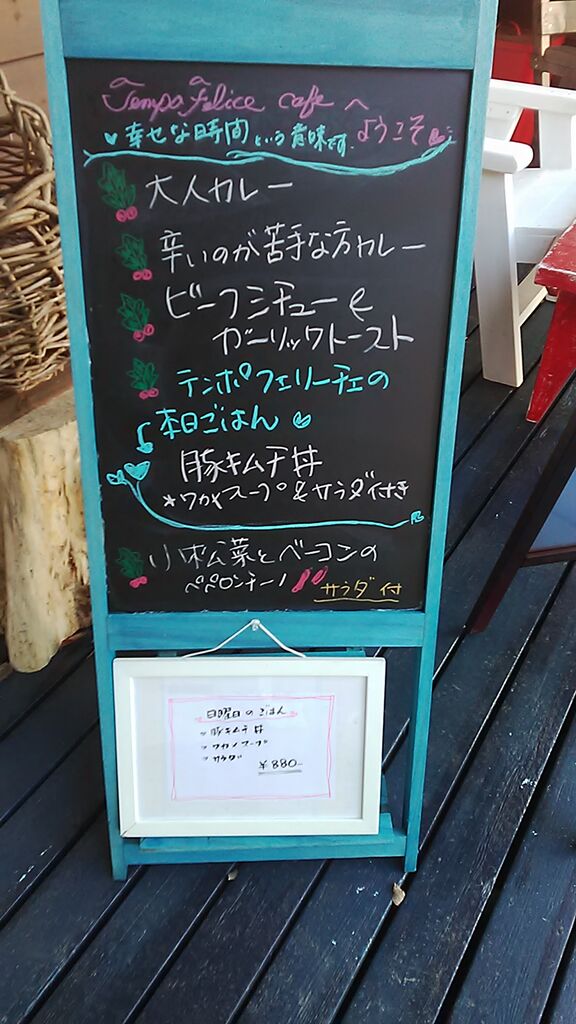 Tempo Felice cafe へ
幸せな時間 という意味です. ようこそ
大人カレー
辛いのが苦手な方カレー
ビーフシチューと
ガーリックトースト
テンポフェリーチェの
本日ごはん
豚キムチ丼
★ワカメスープ&サラダ付き
小松菜とベーコンの
ペペロンチーノ
サラダ付
日曜日のごはん
豚キムチ丼
ワカメスープ
サラダ
¥880-